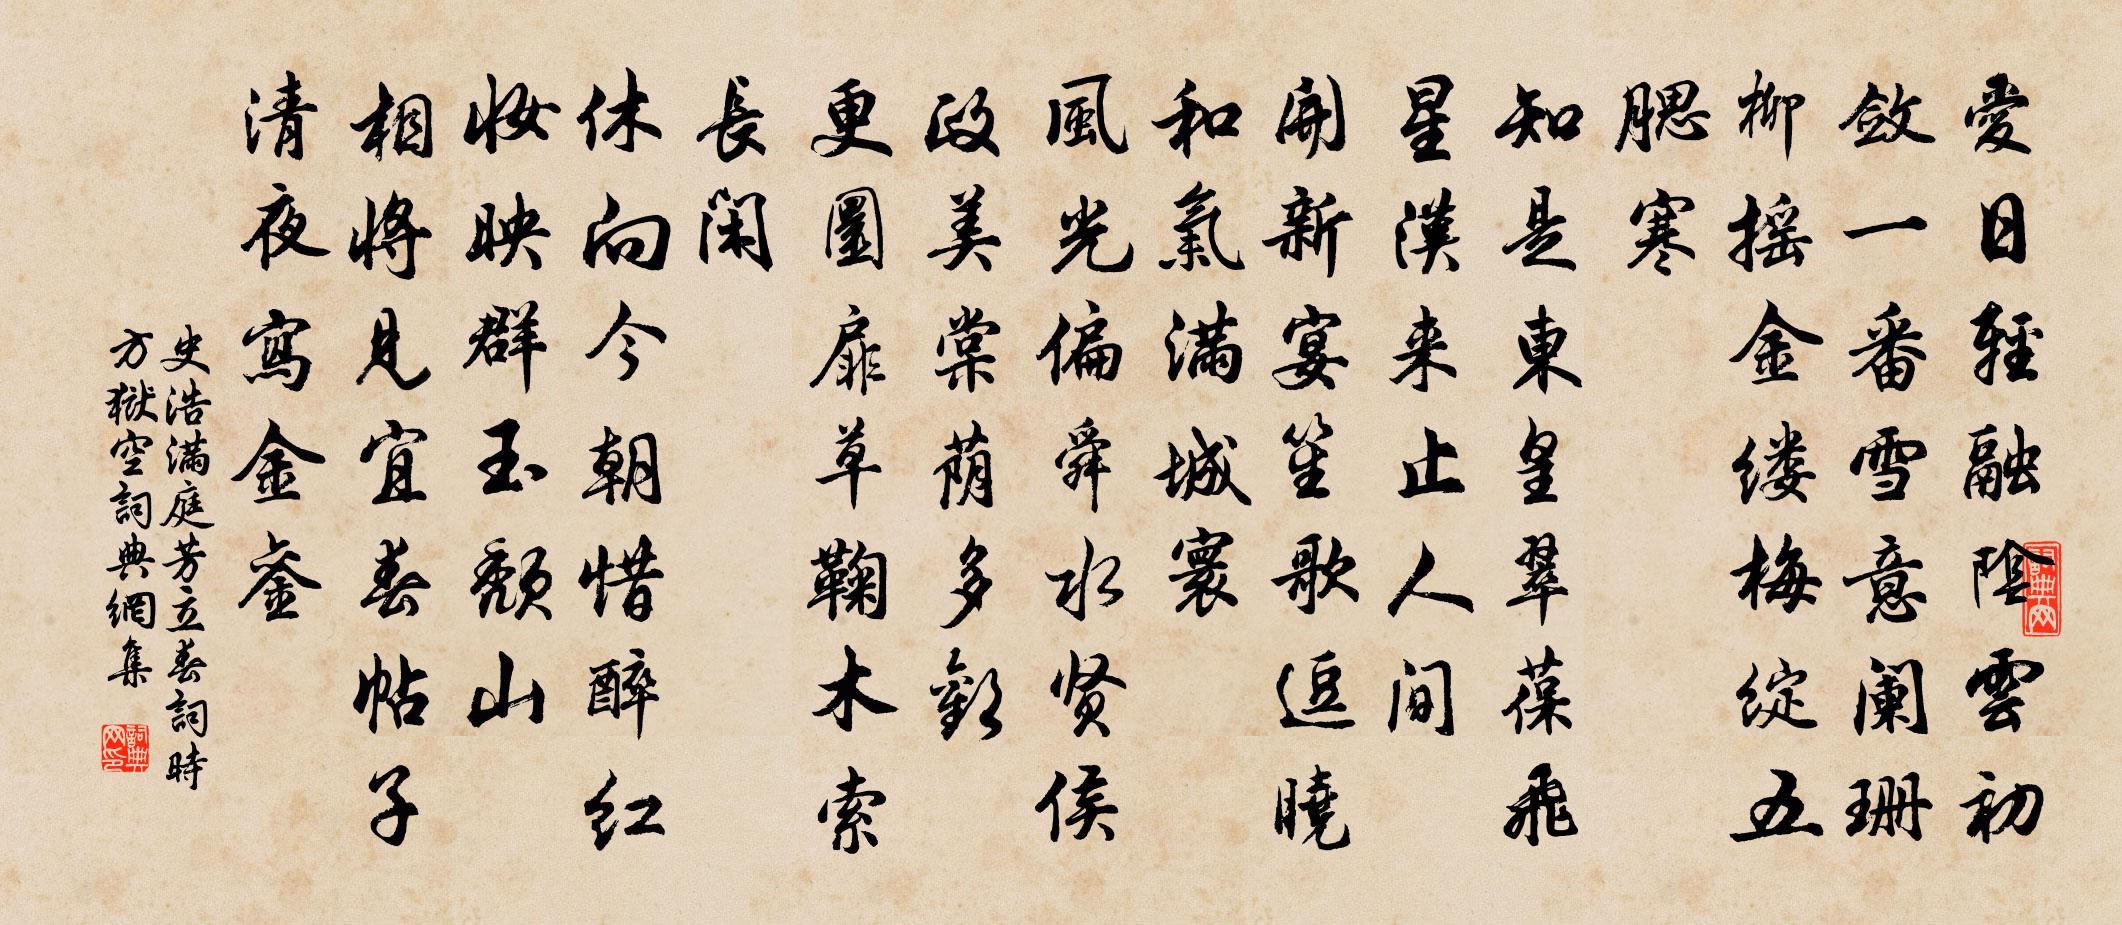 愛日輕融陰雲初
斂一番雪意阑珊
柳摇金缕梅绽五
腮寒
知是東皇翠葆飛
星漢来止人间
開新宴笙歌逗曉
和氣滿城寰
風光偏舜水贤侯
政美棠荫多歡
更圜扉草鞠木索
長闲
休向今朝惜醉红
妆映群玉颓山
相將見宜春帖子
清夜寫金銮
史浩滿庭芳立春詞時
方獄空詞典網集
詞典网
詞典网印